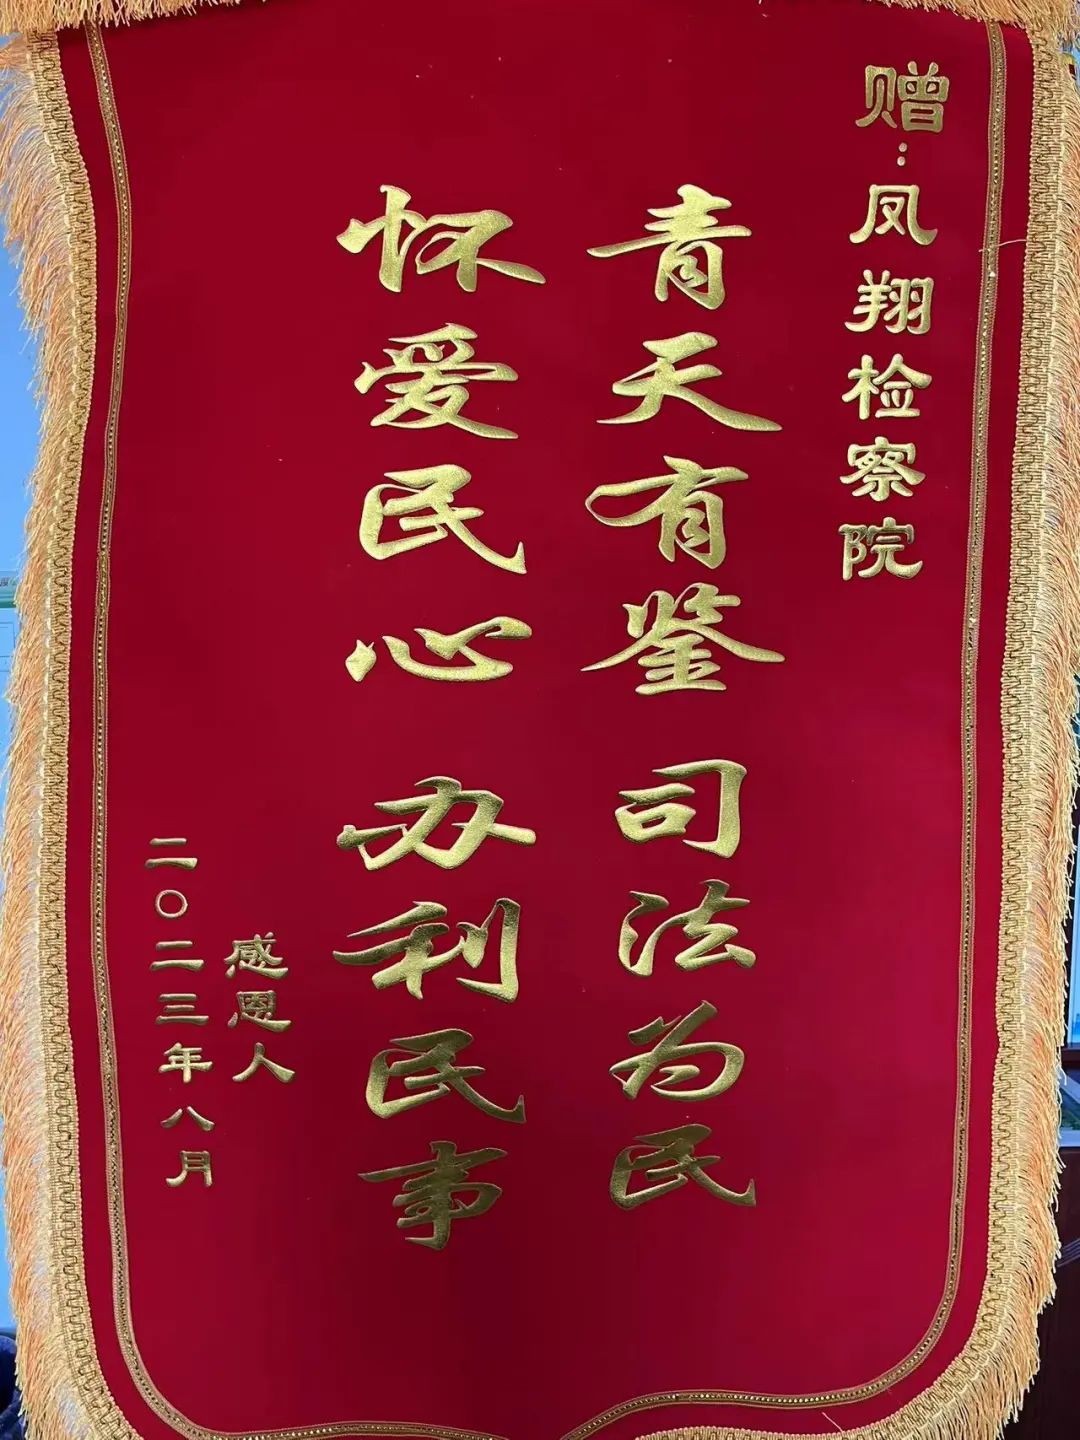 赠：凤翔检察院
青天有鉴 司法为民
怀爱民心 办利民事
感恩人
二〇二三年八月